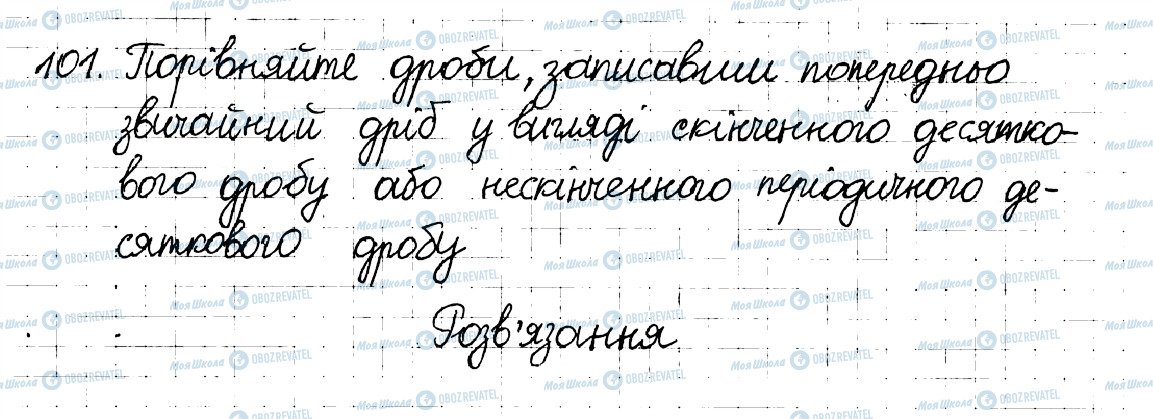 101. Порівняйте дроби, записавши попередньо
звичайний дріб у вигляді скінченного десятко-
вого дробу або нескінченного періодичного де-
сяткового дробу
Розв'язання